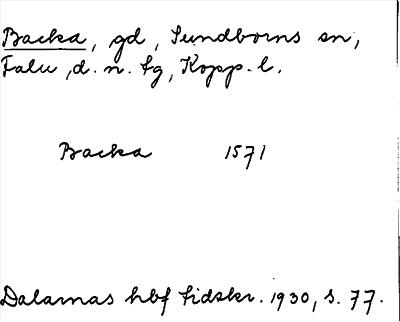 Backa, gd, Sundborns sn,
Falu, d. n. tg, Kopp. l.
Backa 1571
Dalarnas hbf tidskr. 1930, s. 77.